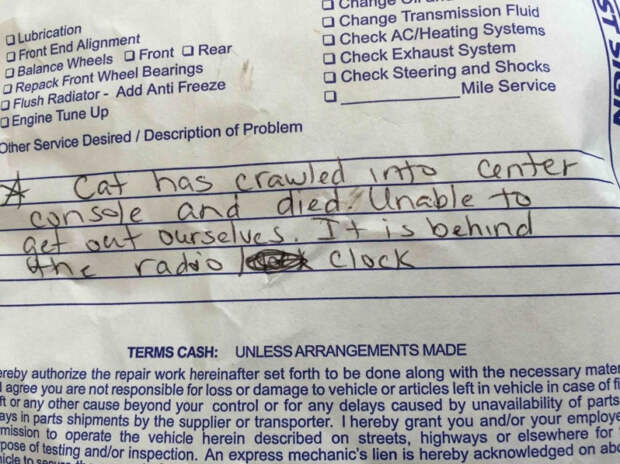 ☐ Lubrication
☐ Front End Alignment
☐ Balance Wheels ☐ Front ☐ Rear
☐ Repack Front Wheel Bearings
☐ Flush Radiator - Add Anti Freeze
☐ Engine Tune Up
☐ Change Oil and
☐ Change Transmission Fluid
☐ Check AC/Heating Systems
☐ Check Exhaust System
☐ Check Steering and Shocks
☐ __________ Mile Service
ST SIGN
Other Service Desired / Description of Problem
☆ Cat has crawled into center
console and died. Unable to
get out ourselves. It is behind
the radio clock
TERMS CASH: UNLESS ARRANGEMENTS MADE
ereby authorize the repair work hereinafter set forth to be done along with the necessary mater
I agree you are not responsible for loss or damage to vehicle or articles left in vehicle in case of fi
ft or any other cause beyond your control or for any delays caused by unavailability of parts
ays in parts shipments by the supplier or transporter. I hereby grant you and/or your employe
mission to operate the vehicle herein described on streets, highways or elsewhere for
pose of testing and/or inspection. An express mechanic's lien is hereby acknowledged on abo
hicle to